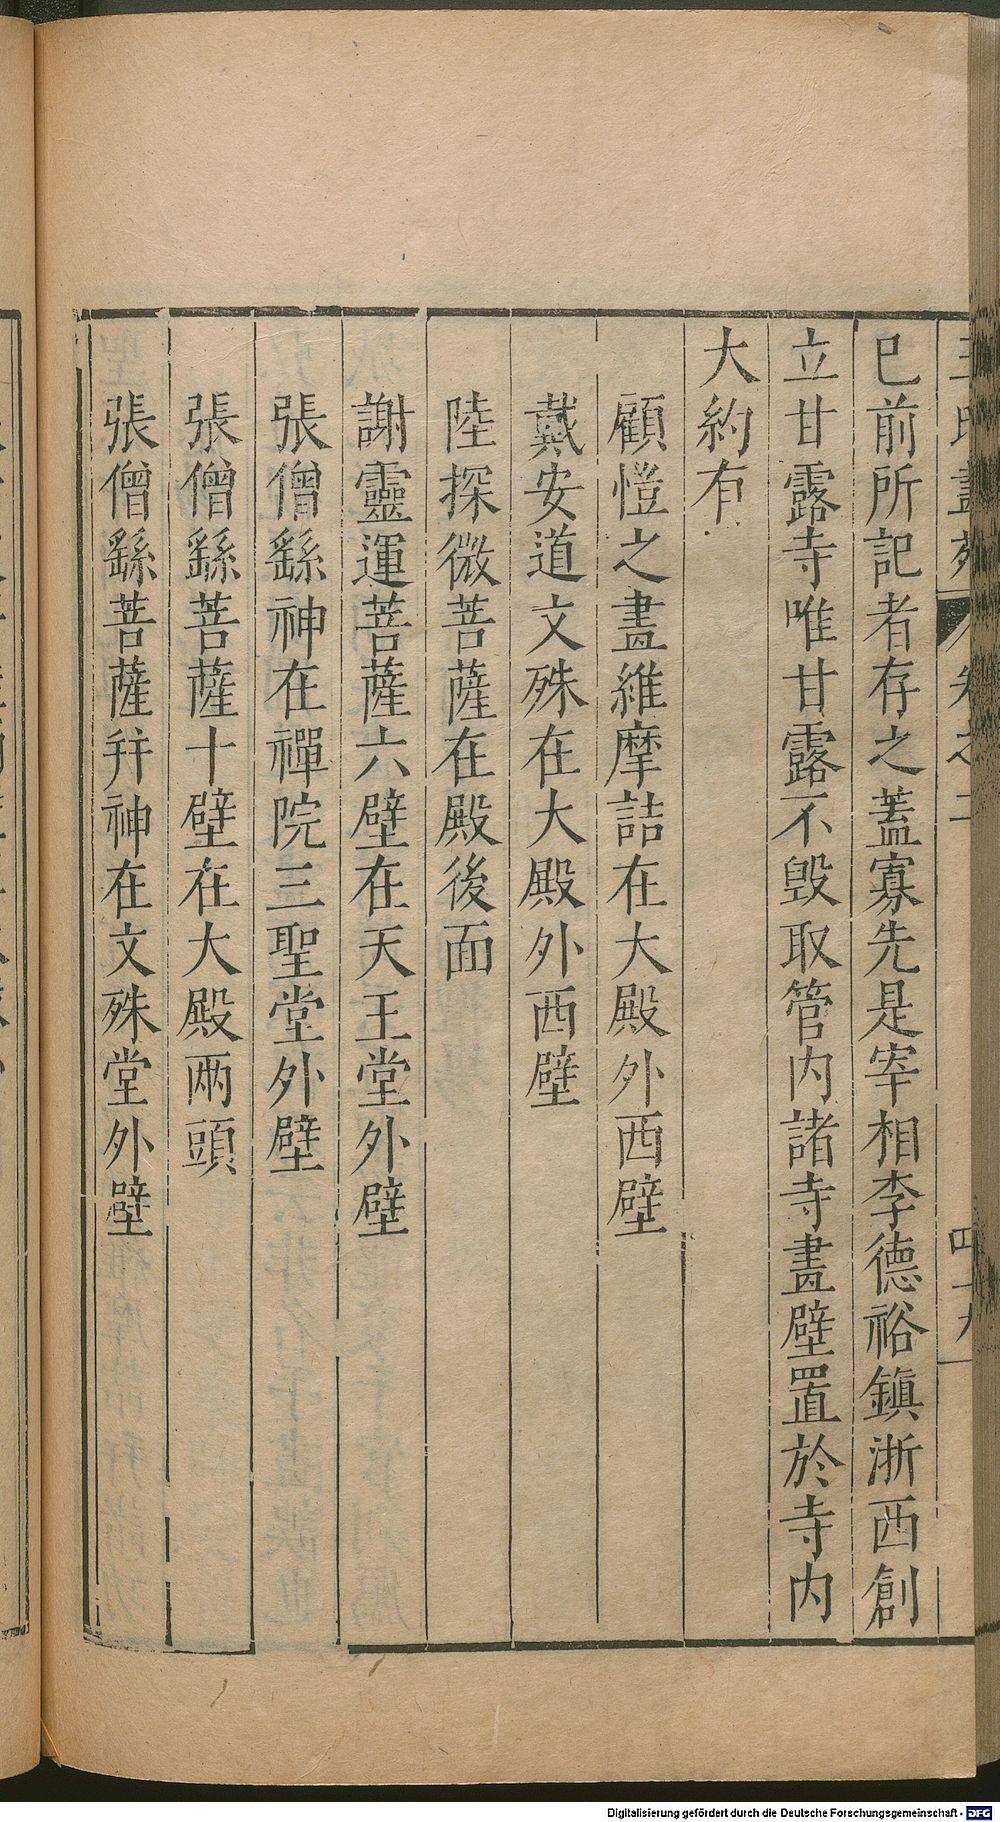 已前所記者存之蓋寡先是宰相李德裕鎮浙西創
立甘露寺唯甘露不毀取管内諸寺畫壁置於寺内
大約有
顧愷之畫維摩詰在大殿外西壁
戴安道文殊在大殿外西壁
陸探微菩薩在殿後面
謝靈運菩薩六壁在天王堂外壁
張僧繇神在禪院三聖堂外壁
張僧繇菩薩十壁在大殿兩頭
張僧繇菩薩并神在文殊堂外壁
Digitalisierung gefördert durch die Deutsche Forschungsgemeinschaft - DFG